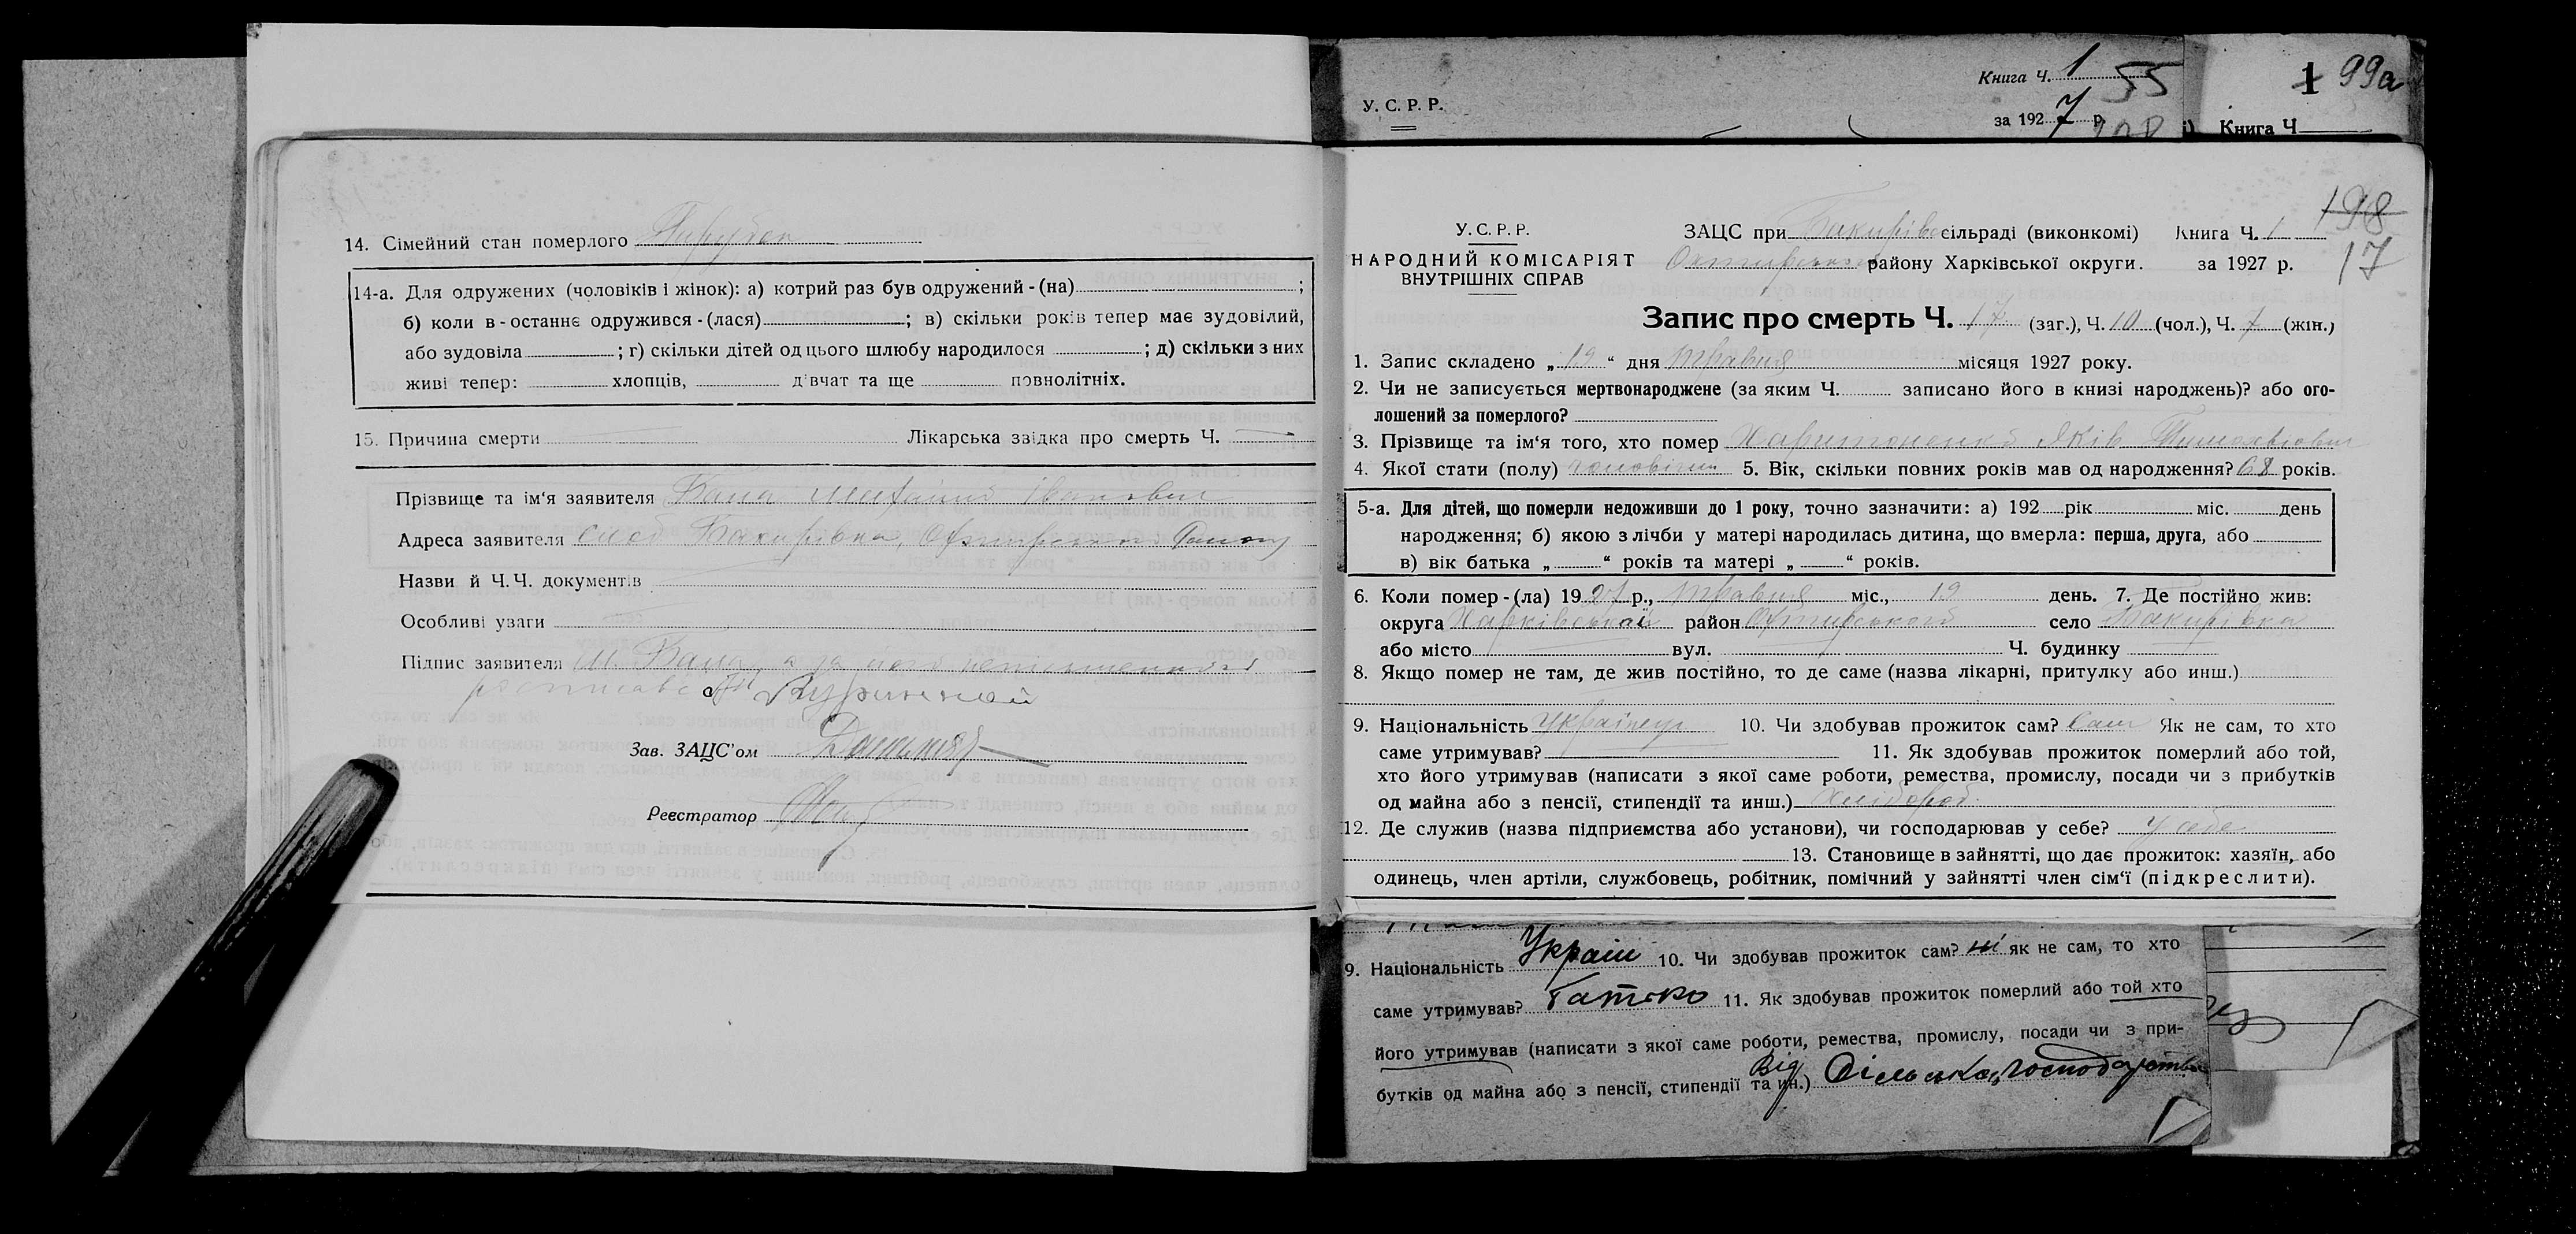 Книга Ч. 1 55
У. С. Р. Р.
за 1927 р.
1 99а
Книга Ч
14. Сімейний стан померлого
14-а. Для одружених (чоловіків і жінок): а) котрий раз був одружений - (на) ;
б) коли в - останнє одружився - (лася) ; в) скільки років тепер має зудовілий,
або зудовіла ; г) скільки дітей од цього шлюбу народилося ; д) скільки з них
живі тепер: хлопців, дівчат та ще повнолітніх.
15. Причина смерти Лікарська звідка про смерть Ч.
Прізвище та ім'я заявителя Іванович
Адреса заявителя слоб Бакирівка, Охтирського Району
Назви й Ч. Ч. документів
Особливі уваги
Підпис заявителя а за його неписьменного
росписавсь
Зав. ЗАЦС'ом
Реєстратор
198
17
У. С. Р. Р.
НАРОДНИЙ КОМІСАРІЯТ
ВНУТРІШНІХ СПРАВ
ЗАЦС при Бакирівс сільраді (виконкомі) Книга Ч. 1
Охтирського району Харківської округи. за 1927 р.
Запис про смерть Ч. 17 (заг.), Ч. 10 (чол.), Ч. 7 (жін.)
1. Запис складено „ 19 “ дня Травня місяця 1927 року.
2. Чи не записується мертвонароджене (за яким Ч. записано його в книзі народжень)? або ого-
лошений за померлого?
3. Прізвище та ім'я того, хто помер Харитоненко Яків Тимохвієвич
4. Якої стати (полу) чоловічи 5. Вік, скільки повних років мав од народження? 68 років.
5-а. Для дітей, що померли недоживши до 1 року, точно зазначити: а) 192 рік міс. день
народження; б) якою з лічби у матері народилась дитина, що вмерла: перша, друга, або
в) вік батька „ “ років та матері „ “ років.
6. Коли помер - (ла) 1927 р., Травня міс., 19 день. 7. Де постійно жив:
округа Харківської район Охтирської село Бакирівка
або місто вул. Ч. будинку
8. Якщо помер не там, де жив постійно, то де саме (назва лікарні, притулку або инш.)
9. Національність Українець 10. Чи здобував прожиток сам? Сам Як не сам, то хто
саме утримував? 11. Як здобував прожиток померлий або той,
хто його утримував (написати з якої саме роботи, ремества, промислу, посади чи з прибутків
од майна або з пенсії, стипендії та инш.) Хлібороб.
12. Де служив (назва підприємства або установи), чи господарював у себе? У себе
13. Становище в зайнятті, що дає прожиток: хазяїн, або
одинець, член артіли, службовець, робітник, помічний у зайнятті член сім'ї (підкреслити).
9. Національність Украін 10. Чи здобував прожиток сам? ні як не сам, то хто
саме утримував? Батько 11. Як здобував прожиток померлий або той хто
його утримував (написати з якої саме роботи, ремества, промислу, посади чи з при-
бутків од майна або з пенсії, стипендії та ин.) Від Сільська господарства